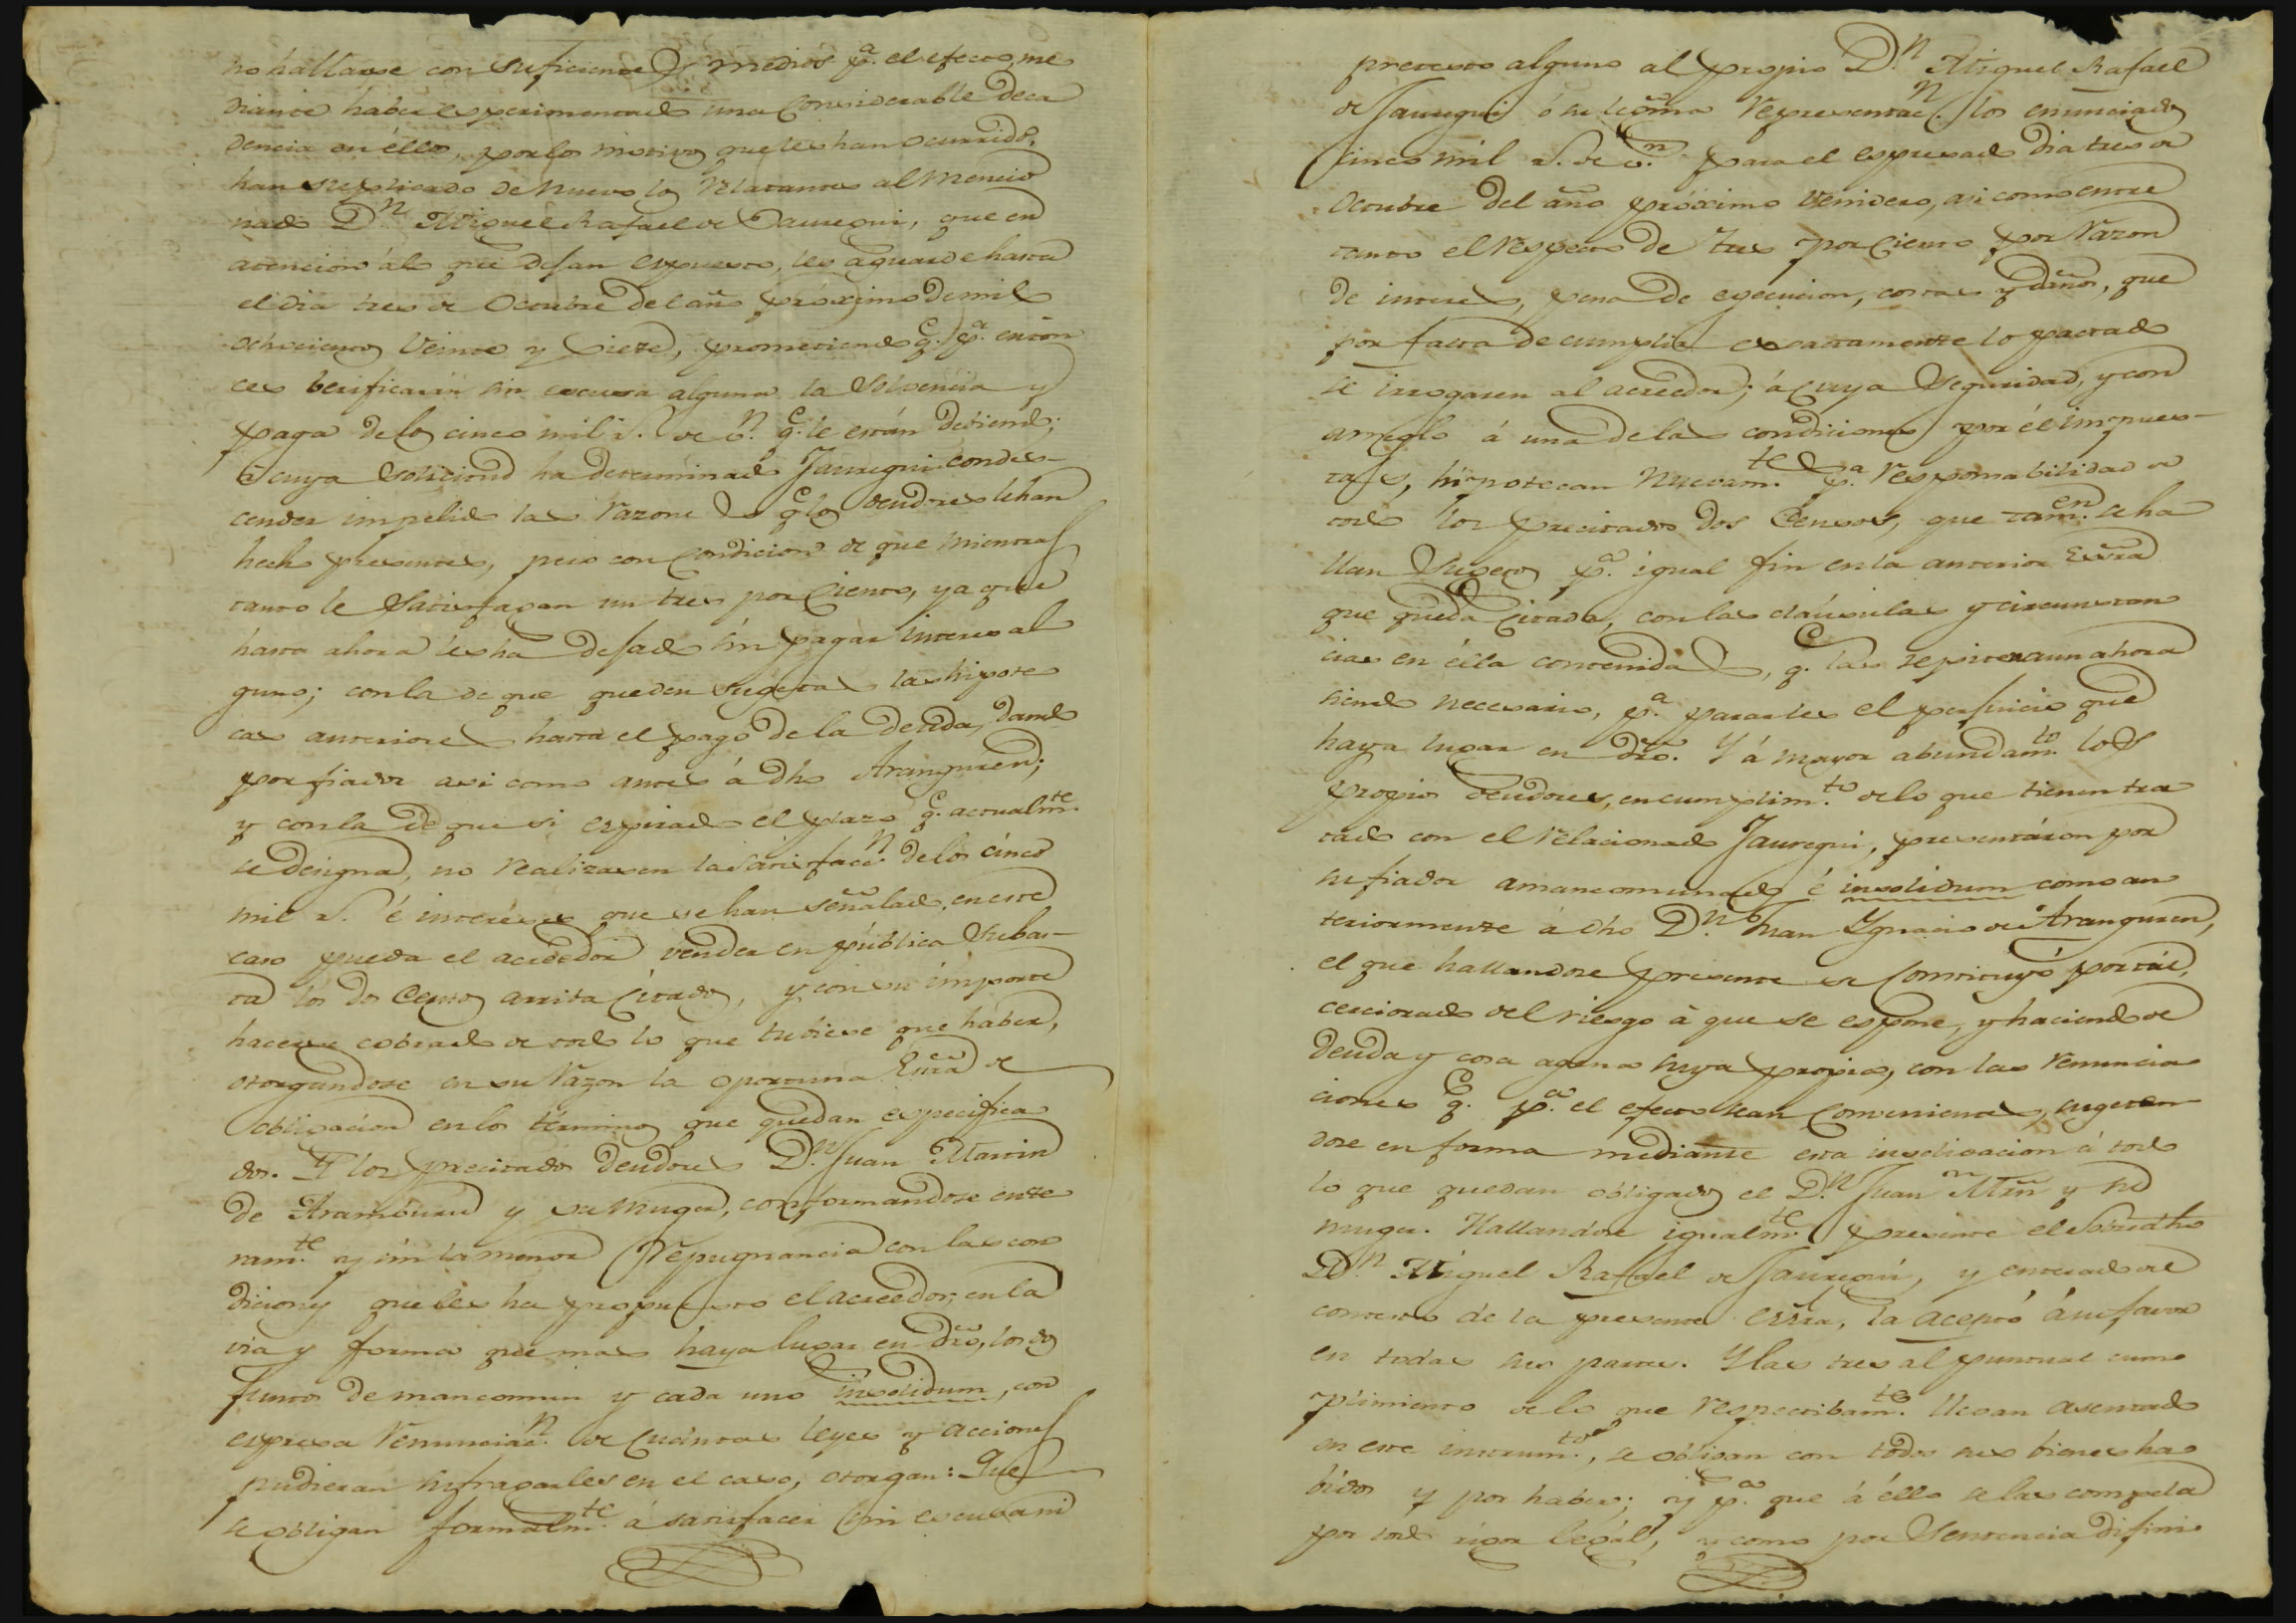 no hallarse con suficientes medios p.ª el efecto, me
diante haber esperimentado una considerable deca
dencia en éllos, por los motivos que les han ocurrido,
han suplicado de nuevo los relatantes al mencio
nado D.n Miguel Rafael de Jauregui, que en
atencion á lo que dejan espuesto, les aguarde hasta
el dia tres de Octubre del año próximo de mil
ochocientos veinte y siete, prometiendo q.e p.ª enton
ces berificarán sin escusa alguna la solvencia y
paga de los cinco mil r.s de v.n q.e le están debiendo;
á cuya solicitud ha determinado Jauregui condes-
cender impelido de las razones q.e los deudores le han
hecho presentes, pero con condicion de que mientras
tanto le satisfagan un tres por ciento, ya que
hasta ahora les ha dejado sin pagar interes al
guno; con la de que queden sugetas las hipote
cas anteriores hasta el pago de la deuda, dando
por fiador asi como antes á dho Aranguren;
y con la de que si espirado el plazo q.e actualm.te
se designa, no realizasen la satisfacc.n de los cinco
mil r.s é intereses que se han señalado, en este
caso pueda el acrehedor vender en pública subas-
ta los dos Censos arriba citados, y con su importe
hacerse cobrado de todo lo que tubiese que haber,
otorgandose en su razon la oportuna Escra de
obligacion en los términos que quedan especifica
dos. Y los precitados deudores D.n Juan Martin
de Aramburu y su muger, conformandose ente
ram.te y sin la menor repugnancia con las con
diciones que les ha propuesto el acreedor, en la
via y forma que mas haya lugar en dro, los dos
juntos de mancomun y cada uno insolidum, con
espresa renunciac.n de cuantas leyes y acciones
pudieran sufragarles en el caso, otorgan: Que
se obligan formalm.te á satisfacer sin escusa ni
pretesto alguno al propio D.n Miguel Rafael
de Jauregui ó su legitima representac.n los enunciados
cinco mil r.s de v.n para el espresado dia tres de
Octubre del año próximo venidero, asi como entre
tanto el respecto de tres por ciento por razon
de interes, pena de egecucion, costas y daños, que
por falta de cumplir esactamente lo pactado
se irrogaren al acreedor; á cuya seguridad, y con
arreglo á una de las condiciones por él impues-
tas, hipotecan nuevam.te p.ª responsabilidad de
todo los precitados dos Censos, que tam.en se ha
llan sugetos p.ª igual fin en la anterior Escra
que queda citada, con las cláusulas y circunstan
cias en élla contenidas, q.e las repiten aun ahora
siendo necesario, p.ª pararles el perjuicio que
haya lugar en dro. Y á mayor abundam.to los
propios deudores, en cumplim.to de lo que tienen tra
tado con el relacionado Jauregui, presentáron por
su fiador amancomunado é insolidum como an
teriormente á dho D.n Juan Ygnacio de Aranguren,
el que hallandose presente se constituyó por tál,
cerciorado del riesgo á que se espone, y haciendo de
deuda y cosa agena suya propia, con las renuncia
ciones q.e p.ª el efecto sean convenientes, sugetan
dose en forma mediante esta insolidacion á todo
lo que quedan obligados el D.n Juan Mrn y su
muger. Hallandose igualm.te presente el sobredho
D.n Miguel Rafael de Jauregui, y enterado del
contesto de la presente escra, la aceptó á su favor
en todas sus partes. Y las tres al puntual cum
plimiento de lo que respectibam.te llevan asentado
en este instrum.to, se obligan con todos sus bienes ha
bidos y por haber; y p.ª que á éllo se las compela
por todo rigor legál, y como por sentencia difini